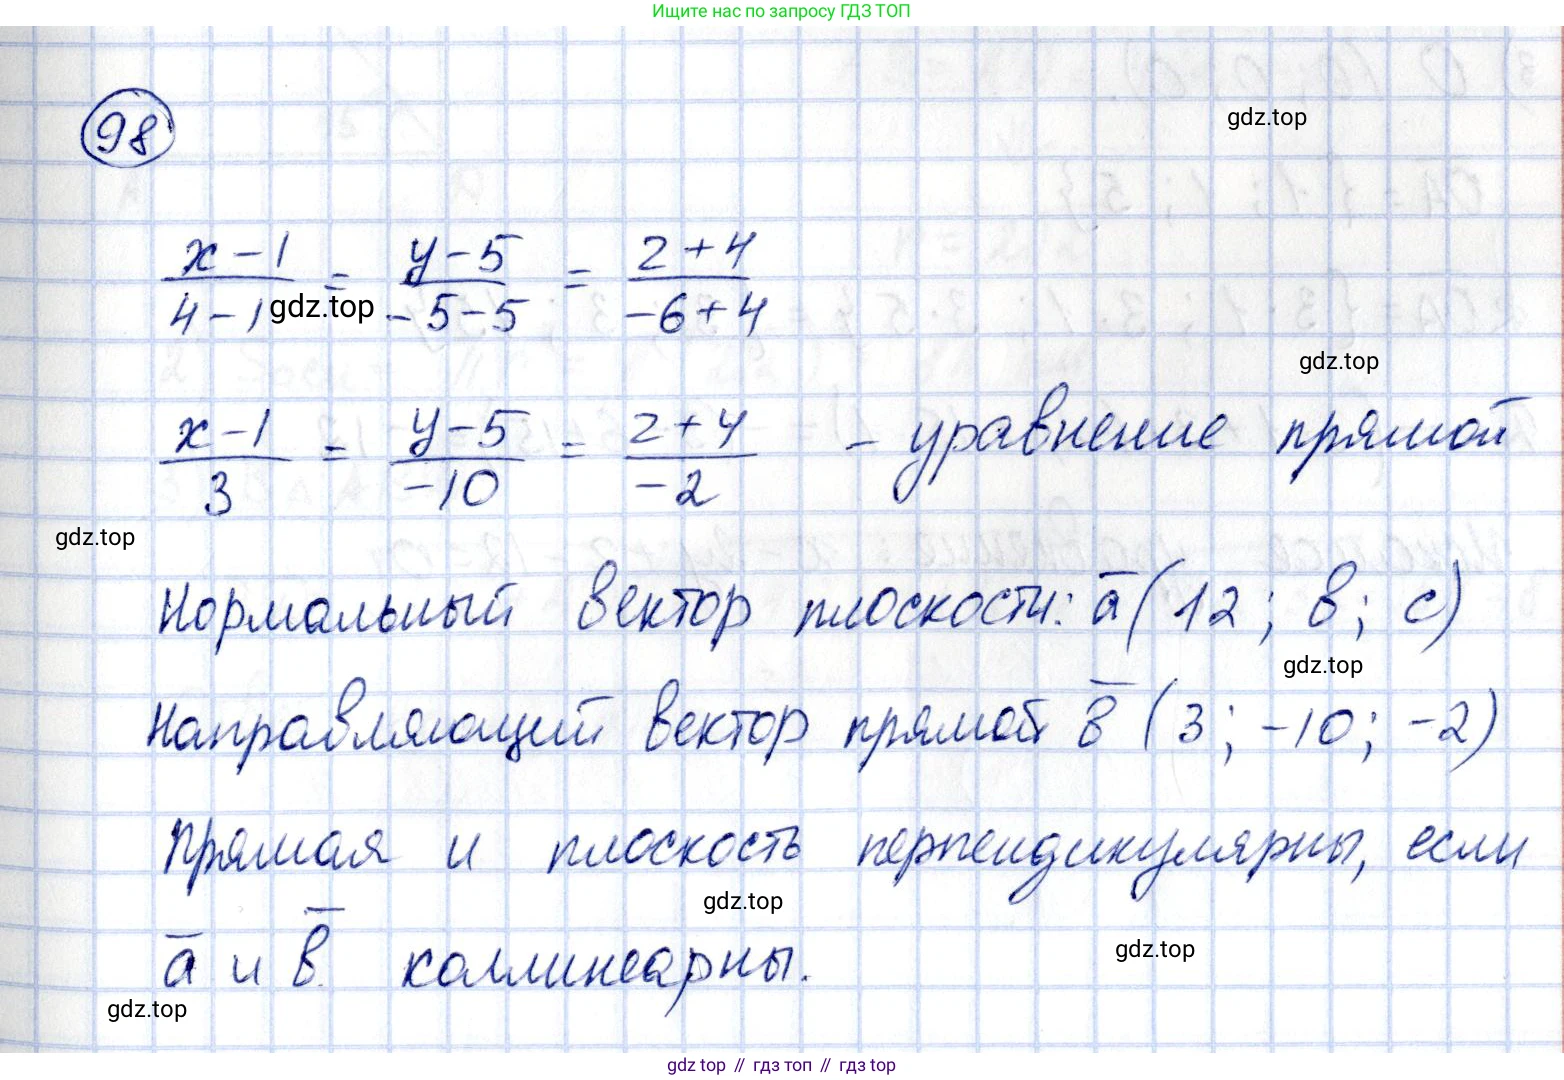 Ищите нас по запросу ГДЗ ТОП
98
gdz.top
x-1/4-1 = y-5/-5-5 = z+4/-6+4
gdz.top
gdz.top
x-1/3 = y-5/-10 = z+4/-2 - уравнение прямой
gdz.top
Нормальный вектор плоскости: a̅(12; b; c)
gdz.top
Направляющий вектор прямой b̅ (3; -10; -2)
Прямая и плоскость перпендикулярны, если
gdz.top
a̅ и b̅ коллинеарны.
gdz.top
gdz.top
gdz.top // гдз топ // гдз top